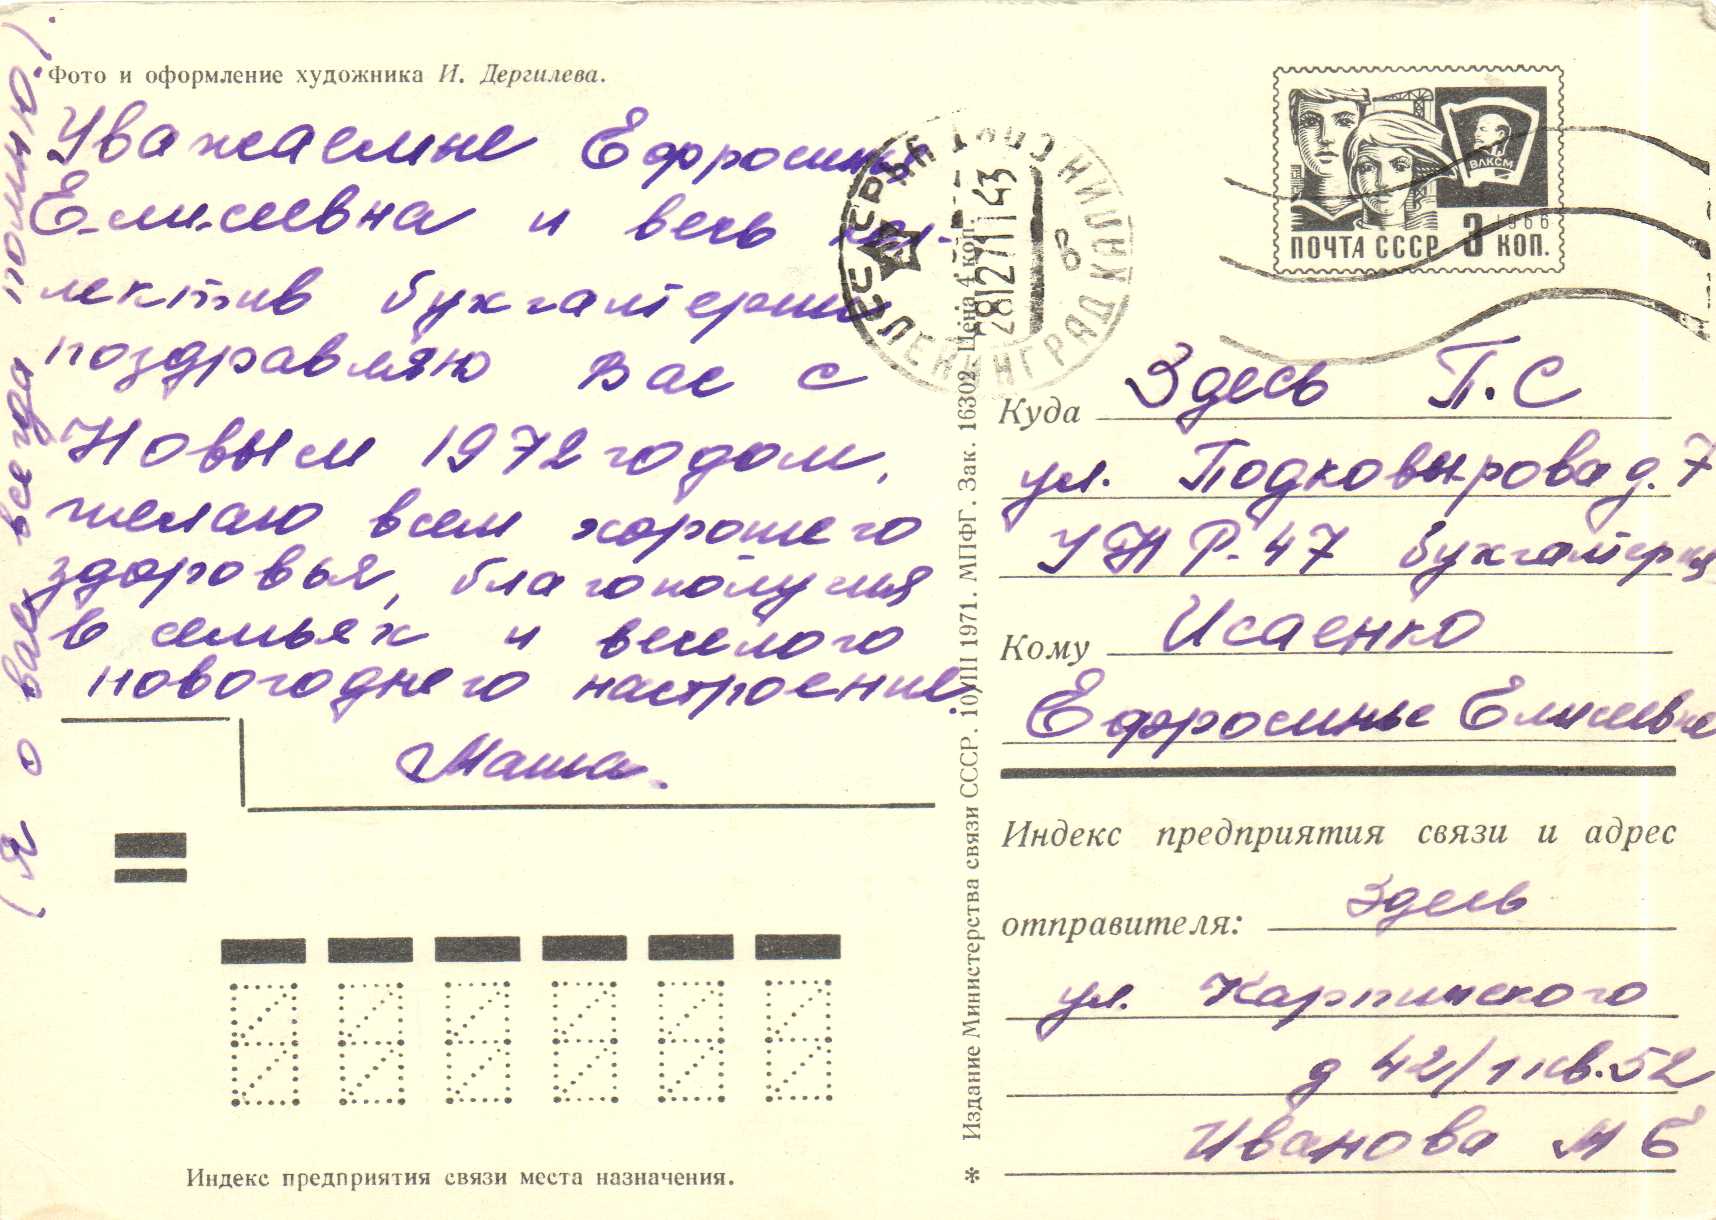 Фото и оформление художника И. Дергилева.
Уважаемые Ефросинья
Елисеевна и весь кол-
лектив бухгалтерии
поздравляю Вас с
Новым 1972 годом,
желаю всем хорошего
здоровья, благополучия
в семьях и веселого
новогоднего настроения.
Маша.
(я о вас всегда помню.)
Индекс предприятия связи места назначения.
Издание Министерства связи СССР. 10/VIII 1971. МПФГ. Зак. 16302. Цена 4 коп.
*
СССР
ЛЕНИНГРАД
2812711143
в
ВЛКСМ
1966
ПОЧТА СССР 3 КОП.
Куда Здесь П.С
ул. Подковырова д. 7
УНР-47 бухгалтерия
Кому Исаенко
Ефросинье Елисеевне
Индекс предприятия связи и адрес
отправителя: Здесь
ул. Карпинского
д 42/1 кв. 52
Иванова М Б